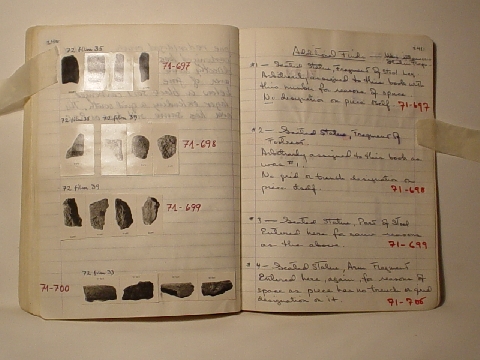 72 film 35
71-697
71-698
72 film 39
71-699
72 film 33
71-700
#1 - Seated Statue, Fragment of Stool Leg
Arbitrarily assigned to this book into
this number for reasons of space.
No designation on piece itself. 71-697
#2 - Seated Statue, Fragment of
Footrest.
Arbitrarily assigned to this book as
was #1.
No grid or trench designation on
piece itself. 71-698
#3 - Seated Statue, Part of Stool
Entered here for same reasons
as the above. 71-699
#4 - Seated Statue, Arm Fragment
Entered here, again, for reasons of
space as piece has no trench or grid
designation on it 71-700